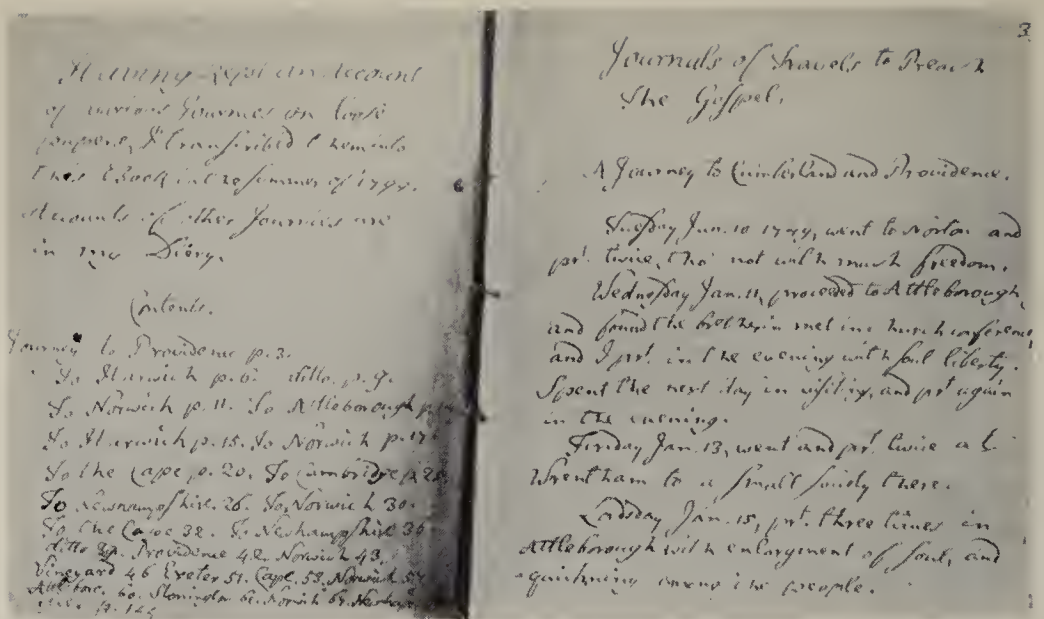 Having kept an Account
of various Journies on loose
papers, I transcribed them into
this Book in the summer of
Accounts of other Journies are
in my Diery.
Contents.
Journey to Providence p. 3.
To Harwich p. 6. ditto. p. 9.
To Norwich p. 11. To Attleborough p.
To Harwich p. 15. To Norwich p. 17.
To the Cape p. 20. To Cambridge p.
To Newhampshire. 26. To Norwich 30.
To the Cape 32. To Newhampshire 36
ditto Providence 42. Norwich 43.
Vineyard 46 Exeter 51. Cape. 53. Norwich
60. Stonington 61. Norwich
3.
Journals of Travels to Preach
the Gospel.
A Journey to Cumberland and Providence.
Tuesday Jan. 10 went to Norton and
prt. twice, tho' not with much freedom.
Wednesday Jan. 11, proceeded to Attleborough,
and found the bretherin met in church conference,
and I prt. in the evening with soul liberty.
Spent the next day in visiting, and prt again
in the evening.
Friday Jan. 13, went and prt. twice at
Wrentham to a small society there.
Lordsday Jan. 15, prt. three times in
Attleborough with enlargment of soul, and
quickning among the people.